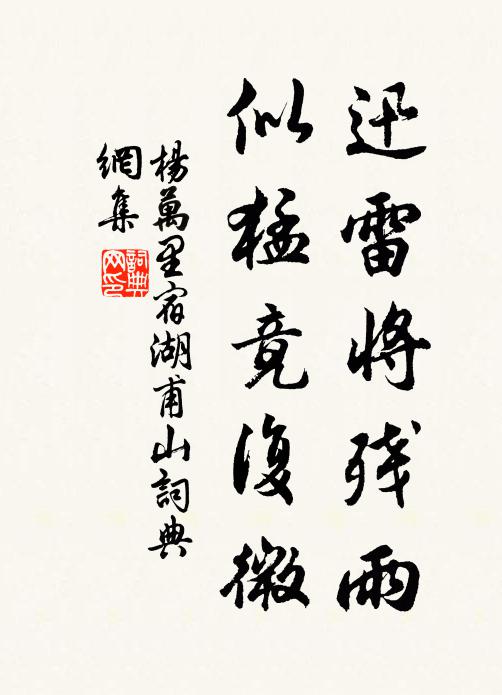 迅雷将残雨
似猛竟復微
楊萬里宿湖甫山詞典
網集
詞典
网印